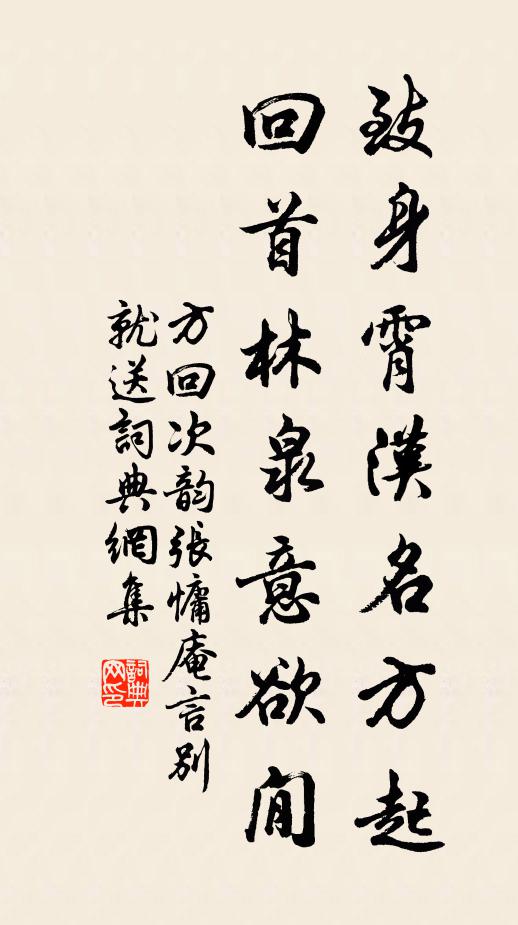 致身霄漢名方起
回首林泉意欲閒
方回次韵張慵庵言别
就送詞典網集
詞典网印